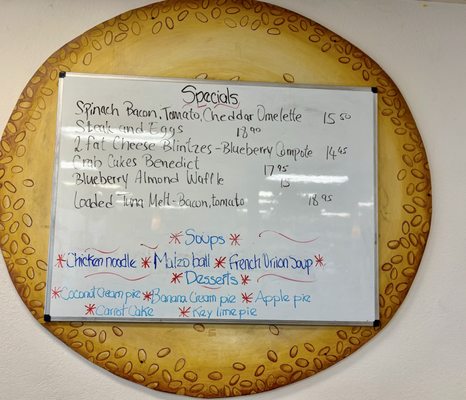 Specials
Spinach Bacon, Tomato, Cheddar Omelette 15 50
Steak and Eggs 18 90
2 Fat Cheese Blintzes - Blueberry Compote 14 45
Crab Cakes Benedict 17 95
Blueberry Almond Waffle 15
Loaded Tuna Melt - Bacon, tomato 18 95
*Soups*
*Chicken noodle *Matzo ball *French Onion Soup*
*Desserts*
*Coconut Cream pie *Banana Cream pie *Apple pie
*Carrot Cake *Key lime pie